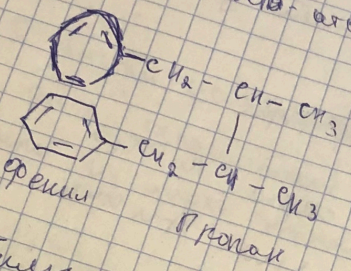 CH₂ - CH - CH₃
CH₂ - CH - CH₃
фенил
Пропан